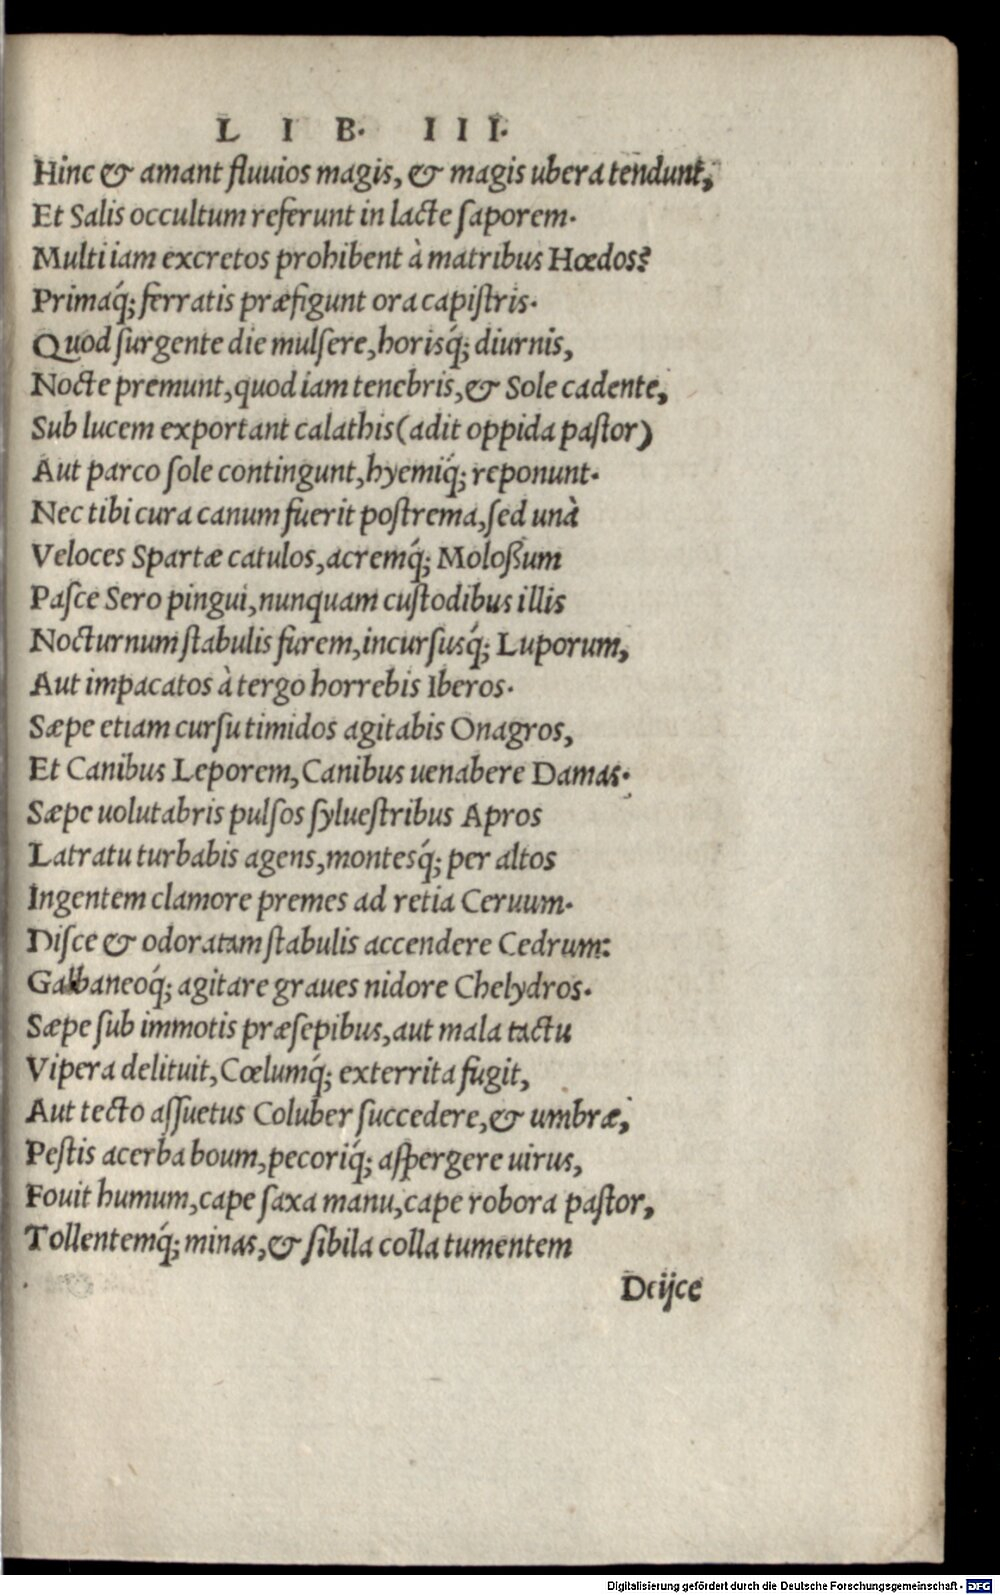 L I B. I I I.
Hinc & amant fluuios magis, & magis ubera tendunt,
Et Salis occultum referunt in lacte ſaporem.
Multi iam excretos prohibent à matribus Hœdos?
Primaq́; ferratis præfigunt ora capiſtris.
Quod ſurgente die mulſere, horisq́; diurnis,
Nocte premunt, quod iam tenebris, & Sole cadente,
Sub lucem exportant calathis (adit oppida paſtor)
Aut parco ſole contingunt, hyemiq́; reponunt.
Nec tibi cura canum fuerit poſtrema, ſed unà
Veloces Spartæ catulos, acremq́; Moloßum
Paſce Sero pingui, nunquam cuſtodibus illis
Nocturnum ſtabulis furem, incurſusq́; Luporum,
Aut impacatos à tergo horrebis Iberos.
Sæpe etiam curſu timidos agitabis Onagros,
Et Canibus Leporem, Canibus uenabere Damas.
Sæpe uolutabris pulſos ſylueſtribus Apros
Latratu turbabis agens, montesq́; per altos
Ingentem clamore premes ad retia Ceruum.
Diſce & odoratam ſtabulis accendere Cedrum:
Galbaneoq́; agitare graues nidore Chelydros.
Sæpe ſub immotis præſepibus, aut mala tactu
Vipera delituit, Cœlumq́; exterrita fugit,
Aut tecto aſſuetus Coluber ſuccedere, & umbræ,
Peſtis acerba boum, pecoriq́; aſpergere uirus,
Fouit humum, cape ſaxa manu, cape robora paſtor,
Tollentemq́; minas, & ſibila colla tumentem
Deijce
Digitalisierung gefördert durch die Deutsche Forschungsgemeinschaft - DFG